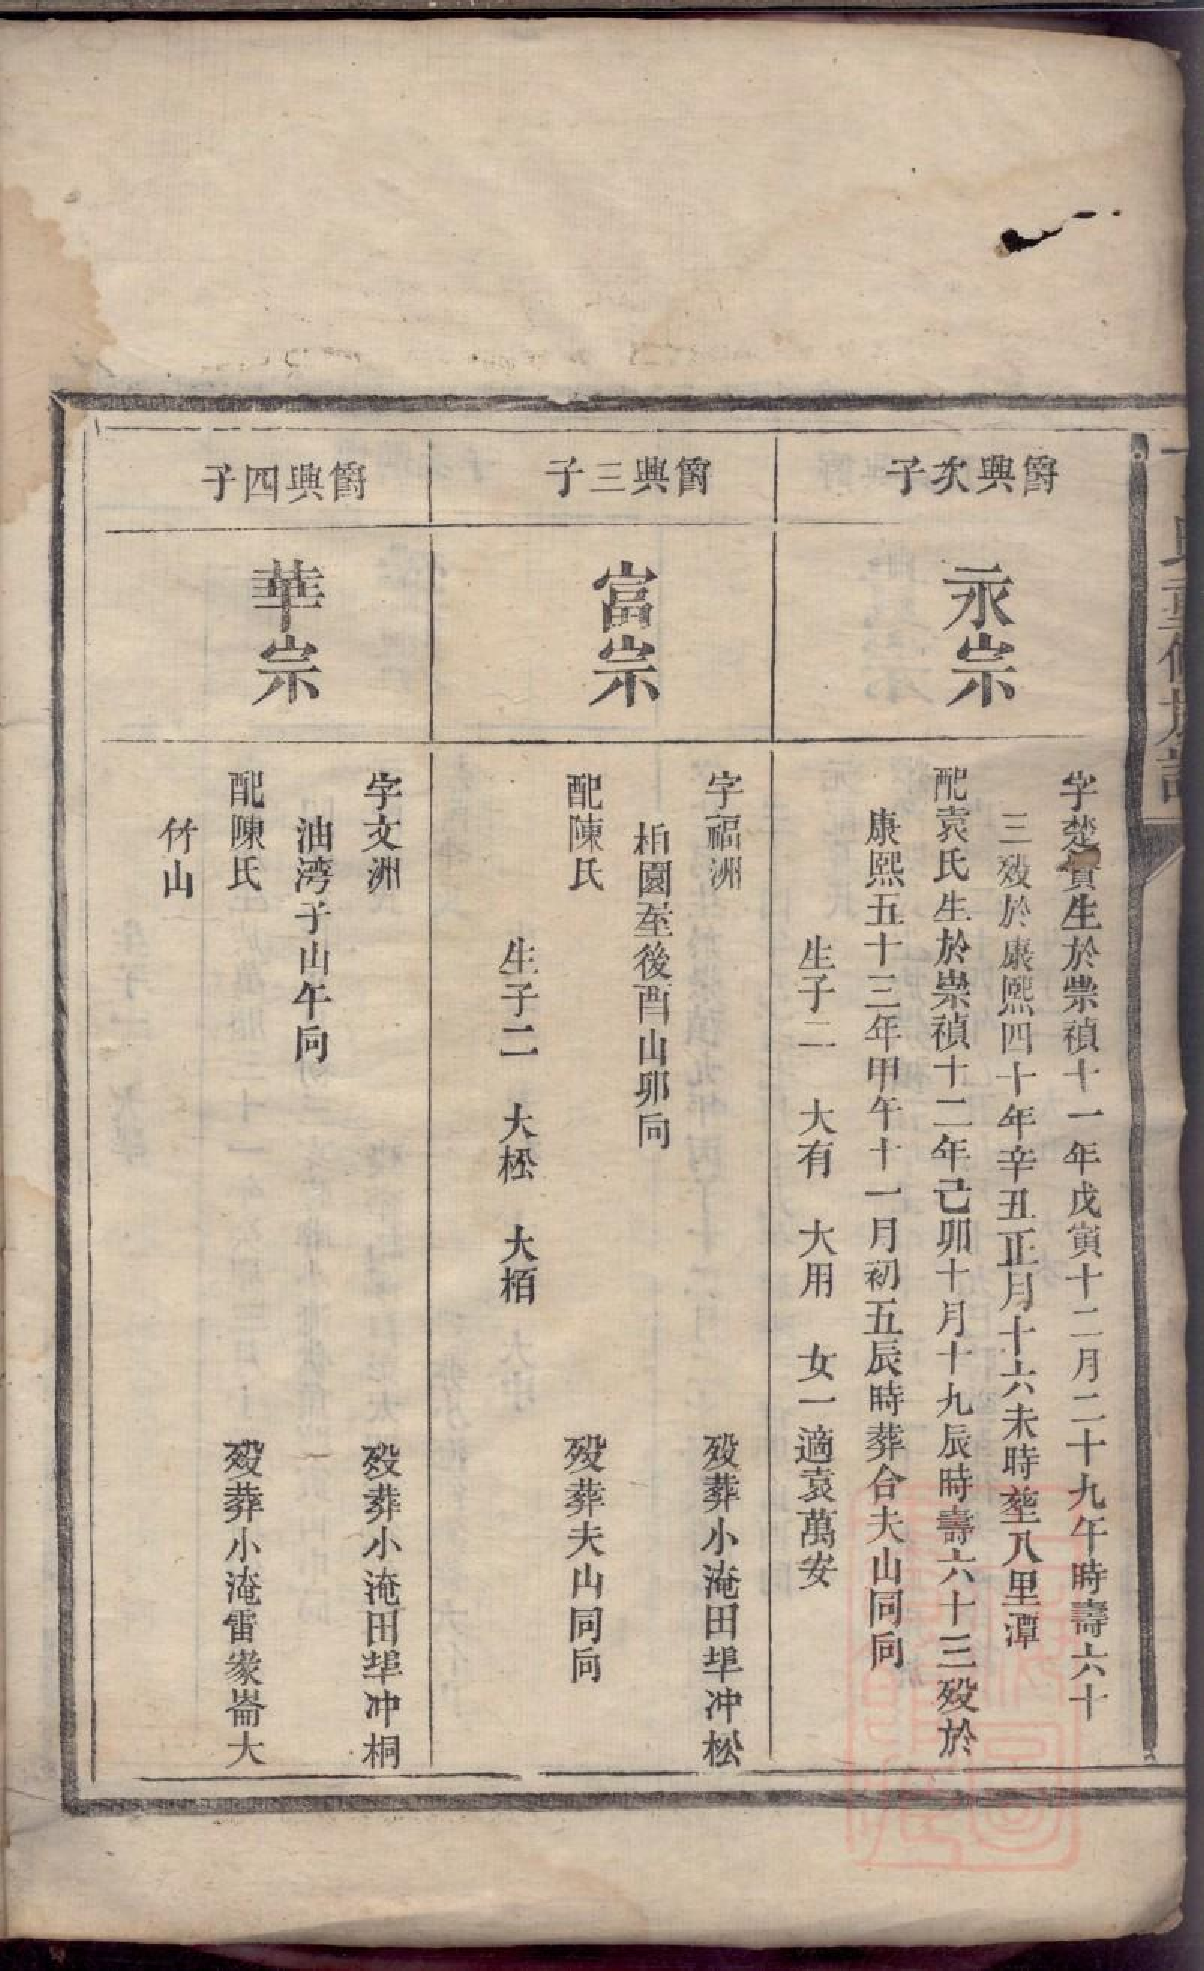 爵興次子
永宗
字楚賓生於崇禎十一年戊寅十二月二十九午時壽六十
三歿於康熙四十年辛丑正月十六未時塟八里潭
配袁氏生於崇禎十二年己卯十月十九辰時壽六十三歿於
康熙五十三年甲午十一月初五辰時葬合夫山同向
生子二 大有 大用 女一適袁萬安
爵興三子
富宗
字福洲 歿葬小淹田埠冲松
栢園荎後酉山卯向
配陳氏 歿葬夫山同向
生子二 大松 大栢
爵興四子
華宗
字文洲 歿葬小淹田埠冲桐
油湾子山午向
配陳氏 歿葬小淹雷家崙大
竹山
氏重修族譜